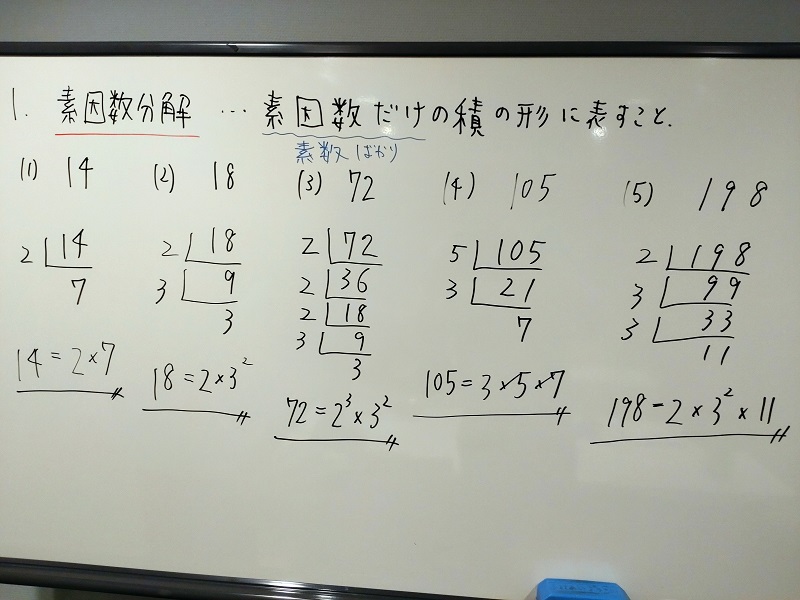 1. 素因数分解 … 素因数だけの積の形に表すこと.
素数ばかり
(1) 14
2 14
7
14=2×7
(2) 18
2 18
3 9
3
18=2×3²
(3) 72
2 72
2 36
2 18
3 9
3
72=2³×3²
(4) 105
5 105
3 21
7
105=3×5×7
(5) 198
2 198
3 99
3 33
11
198=2×3²×11